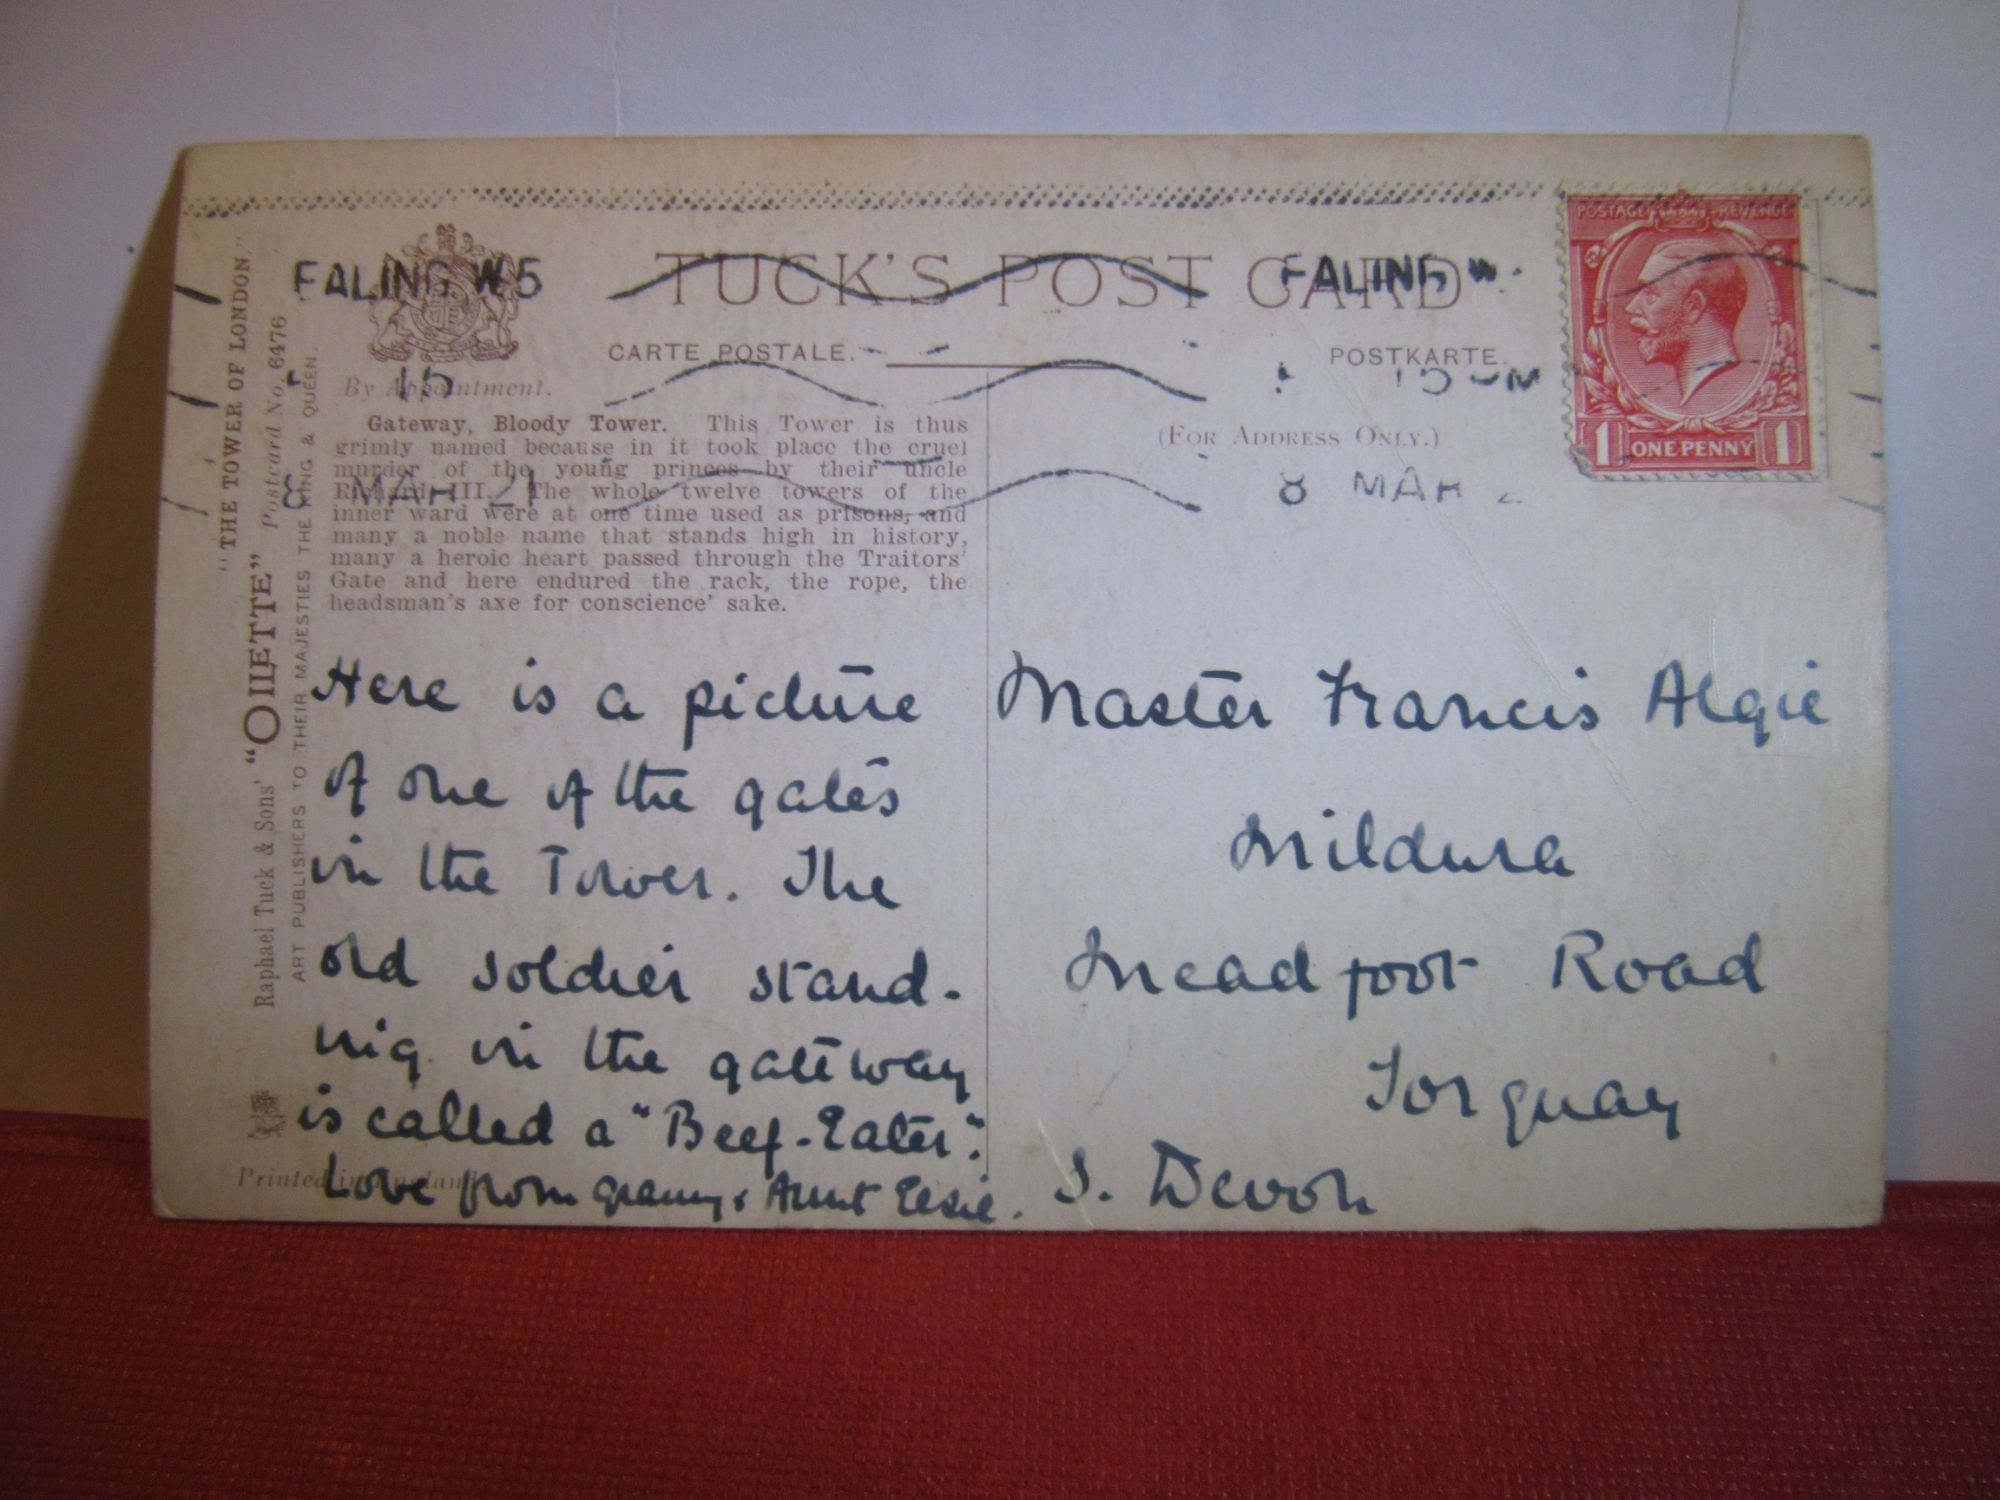 "THE TOWER OF LONDON."
Postcard No. 6476
Raphael Tuck & Sons' "OILETTE"
ART PUBLISHERS TO THEIR MAJESTIES THE KING & QUEEN.
Printed in England
EALING. W5
15
8 MAR 21
TUCK'S POST CARD
CARTE POSTALE.
POSTKARTE.
EALING W.
15 PM
8 MAR 2
POSTAGE REVENUE
1 ONE PENNY 1
By Appointment.
(FOR ADDRESS ONLY.)
Gateway, Bloody Tower. This Tower is thus
grimly named because in it took place the cruel
murder of the young princes by their uncle
Richard III. The whole twelve towers of the
inner ward were at one time used as prisons, and
many a noble name that stands high in history,
many a heroic heart passed through the Traitors'
Gate and here endured the rack, the rope, the
headsman's axe for conscience' sake.
Here is a picture
of one of the gates
in the Tower. The
old soldier stand-
ing in the gateway
is called a "Beef-Eater".
Love from granny & Aunt Elsie.
Master Francis Algie
Mildura
Meadfoot Road
Torquay
S. Devon